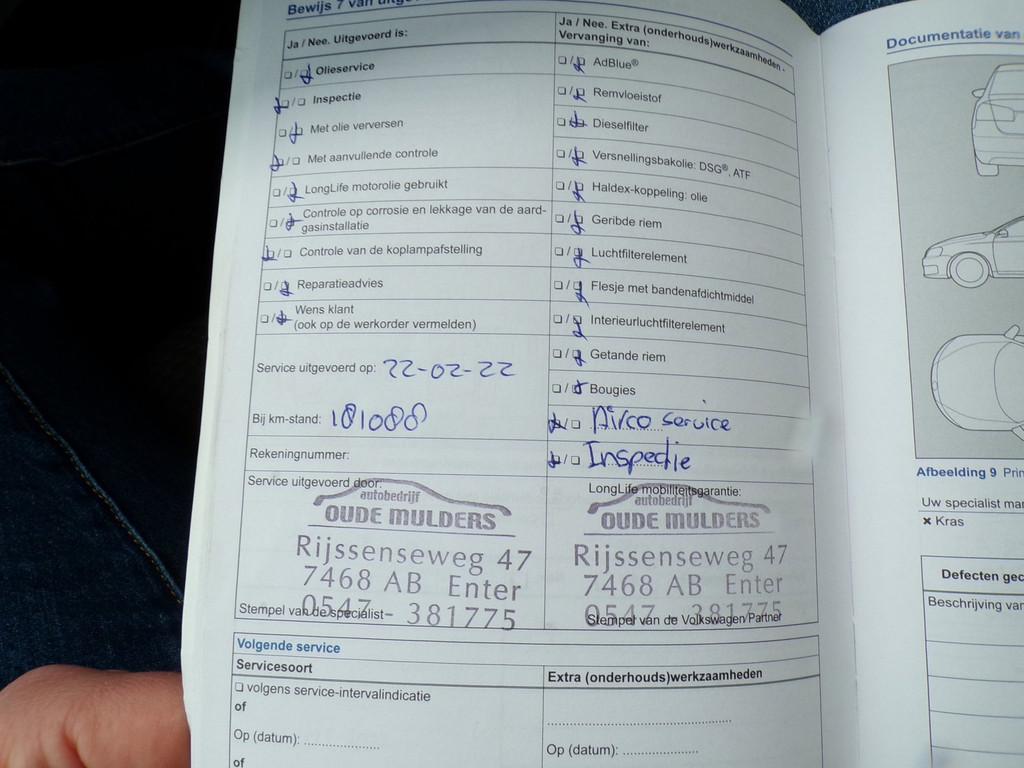 Bewijs 7 van
Ja / Nee. Uitgevoerd is:
Olieservice
Inspectie
Met olie verversen
Met aanvullende controle
LongLife motorolie gebruikt
Controle op corrosie en lekkage van de aard-
gasinstallatie
Controle van de koplampafstelling
Reparatieadvies
Wens klant
(ook op de werkorder vermelden)
Service uitgevoerd op: 22-02-22
Bij km-stand: 181088
Rekeningnummer:
Service uitgevoerd door:
autobedrijf
OUDE MULDERS
Rijssenseweg 47
7468 AB Enter
0547-381775
Stempel van de specialist
Ja / Nee. Extra (onderhouds)werkzaamheden -
Vervanging van:
AdBlue®
Remvloeistof
Dieselfilter
Versnellingsbakolie: DSG®, ATF
Haldex-koppeling: olie
Geribde riem
Luchtfilterelement
Flesje met bandenafdichtmiddel
Interieurluchtfilterelement
Getande riem
Bougies
Airco service
Inspectie
LongLife mobiliteitsgarantie:
autobedrijf
OUDE MULDERS
Rijssenseweg 47
7468 AB Enter
0547-381775
Stempel van de Volkswagen Partner
Volgende service
Servicesoort
volgens service-intervalindicatie
of
Op (datum):
of
Extra (onderhouds)werkzaamheden
Op (datum):
Documentatie van
Afbeelding 9
Uw specialist
× Kras
Defecten
Beschrijving